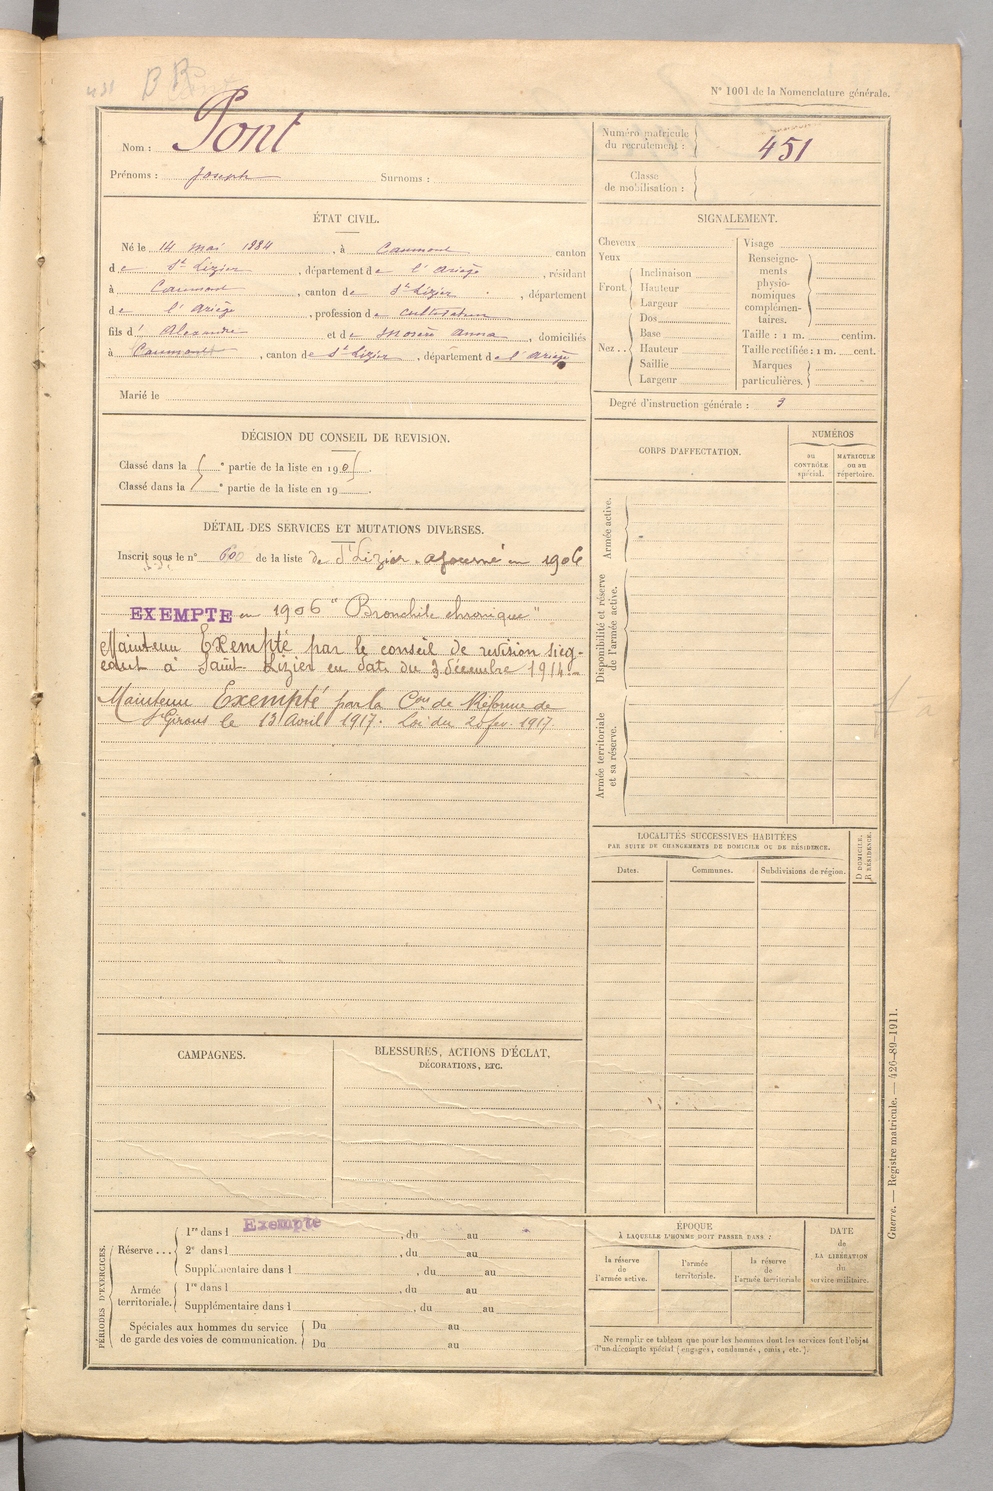 N° 1001 de la Nomenclature générale.
Nom : Pont
Prénoms : Joseph Surnoms :
Numéro matricule du recrutement : 451
Classe de mobilisation :
ÉTAT CIVIL.
Né le 14 mai 1884, à Caumont canton
de St Lizier, département de l'Ariège, résidant
à Caumont, canton de St Lizier, département
de l'Ariège, profession de cultivateur
fils d'Alexandre et de Anna, domiciliés
à Caumont, canton de St Lizier, département de l'Ariège
Marié le
SIGNALEMENT.
Cheveux
Yeux
Front. Inclinaison
Hauteur
Largeur
Nez .. Dos
Base
Hauteur
Saillie
Largeur
Visage
Renseignements physionomiques complémentaires.
Taille : 1 m. centim.
Taille rectifiée : 1 m. cent.
Marques particulières.
Degré d'instruction générale : 3
DÉCISION DU CONSEIL DE REVISION.
Classé dans la ° partie de la liste en 190
Classé dans la ° partie de la liste en 19 .
DÉTAIL DES SERVICES ET MUTATIONS DIVERSES.
Inscrit sous le n° 600 de la liste de St Lizier. ajourné en 1906
EXEMPTE en 1906 "Bronchite chronique"
Maintenu Exempté par le conseil de revision siég-
eant à Saint Lizier en date du 3 décembre 1914.
Maintenu Exempté par la Con de Réforme de
St Girons le 13 Avril 1917. Loi du 20 fev. 1917.
CORPS D'AFFECTATION.
NUMÉROS
au CONTRÔLE spécial.
MATRICULE ou au répertoire.
Armée active.
Disponibilité et réserve de l'armée active.
Armée territoriale et sa réserve.
LOCALITÉS SUCCESSIVES HABITÉES
PAR SUITE DE CHANGEMENTS DE DOMICILE OU DE RÉSIDENCE.
Dates.
Communes.
Subdivisions de région.
D DOMICILE.
R RÉSIDENCE.
CAMPAGNES.
BLESSURES, ACTIONS D'ÉCLAT,
DÉCORATIONS, ETC.
PÉRIODES D'EXERCICES.
Réserve ...
1re dans l Exempte, du au
2e dans l , du au
Supplémentaire dans l , du au
Armée territoriale.
1re dans l , du au
Supplémentaire dans l , du au
Spéciales aux hommes du service de garde des voies de communication.
Du au
Du au
ÉPOQUE
À LAQUELLE L'HOMME DOIT PASSER DANS :
la réserve de l'armée active.
l'armée territoriale.
la réserve de l'armée territoriale
DATE de LA LIBÉRATION du service militaire.
Ne remplir ce tableau que pour les hommes dont les services font l'objet
d'un décompte spécial (engagés, condamnés, omis, etc.).
Guerre. — Registre matricule. — 426-89-1911.